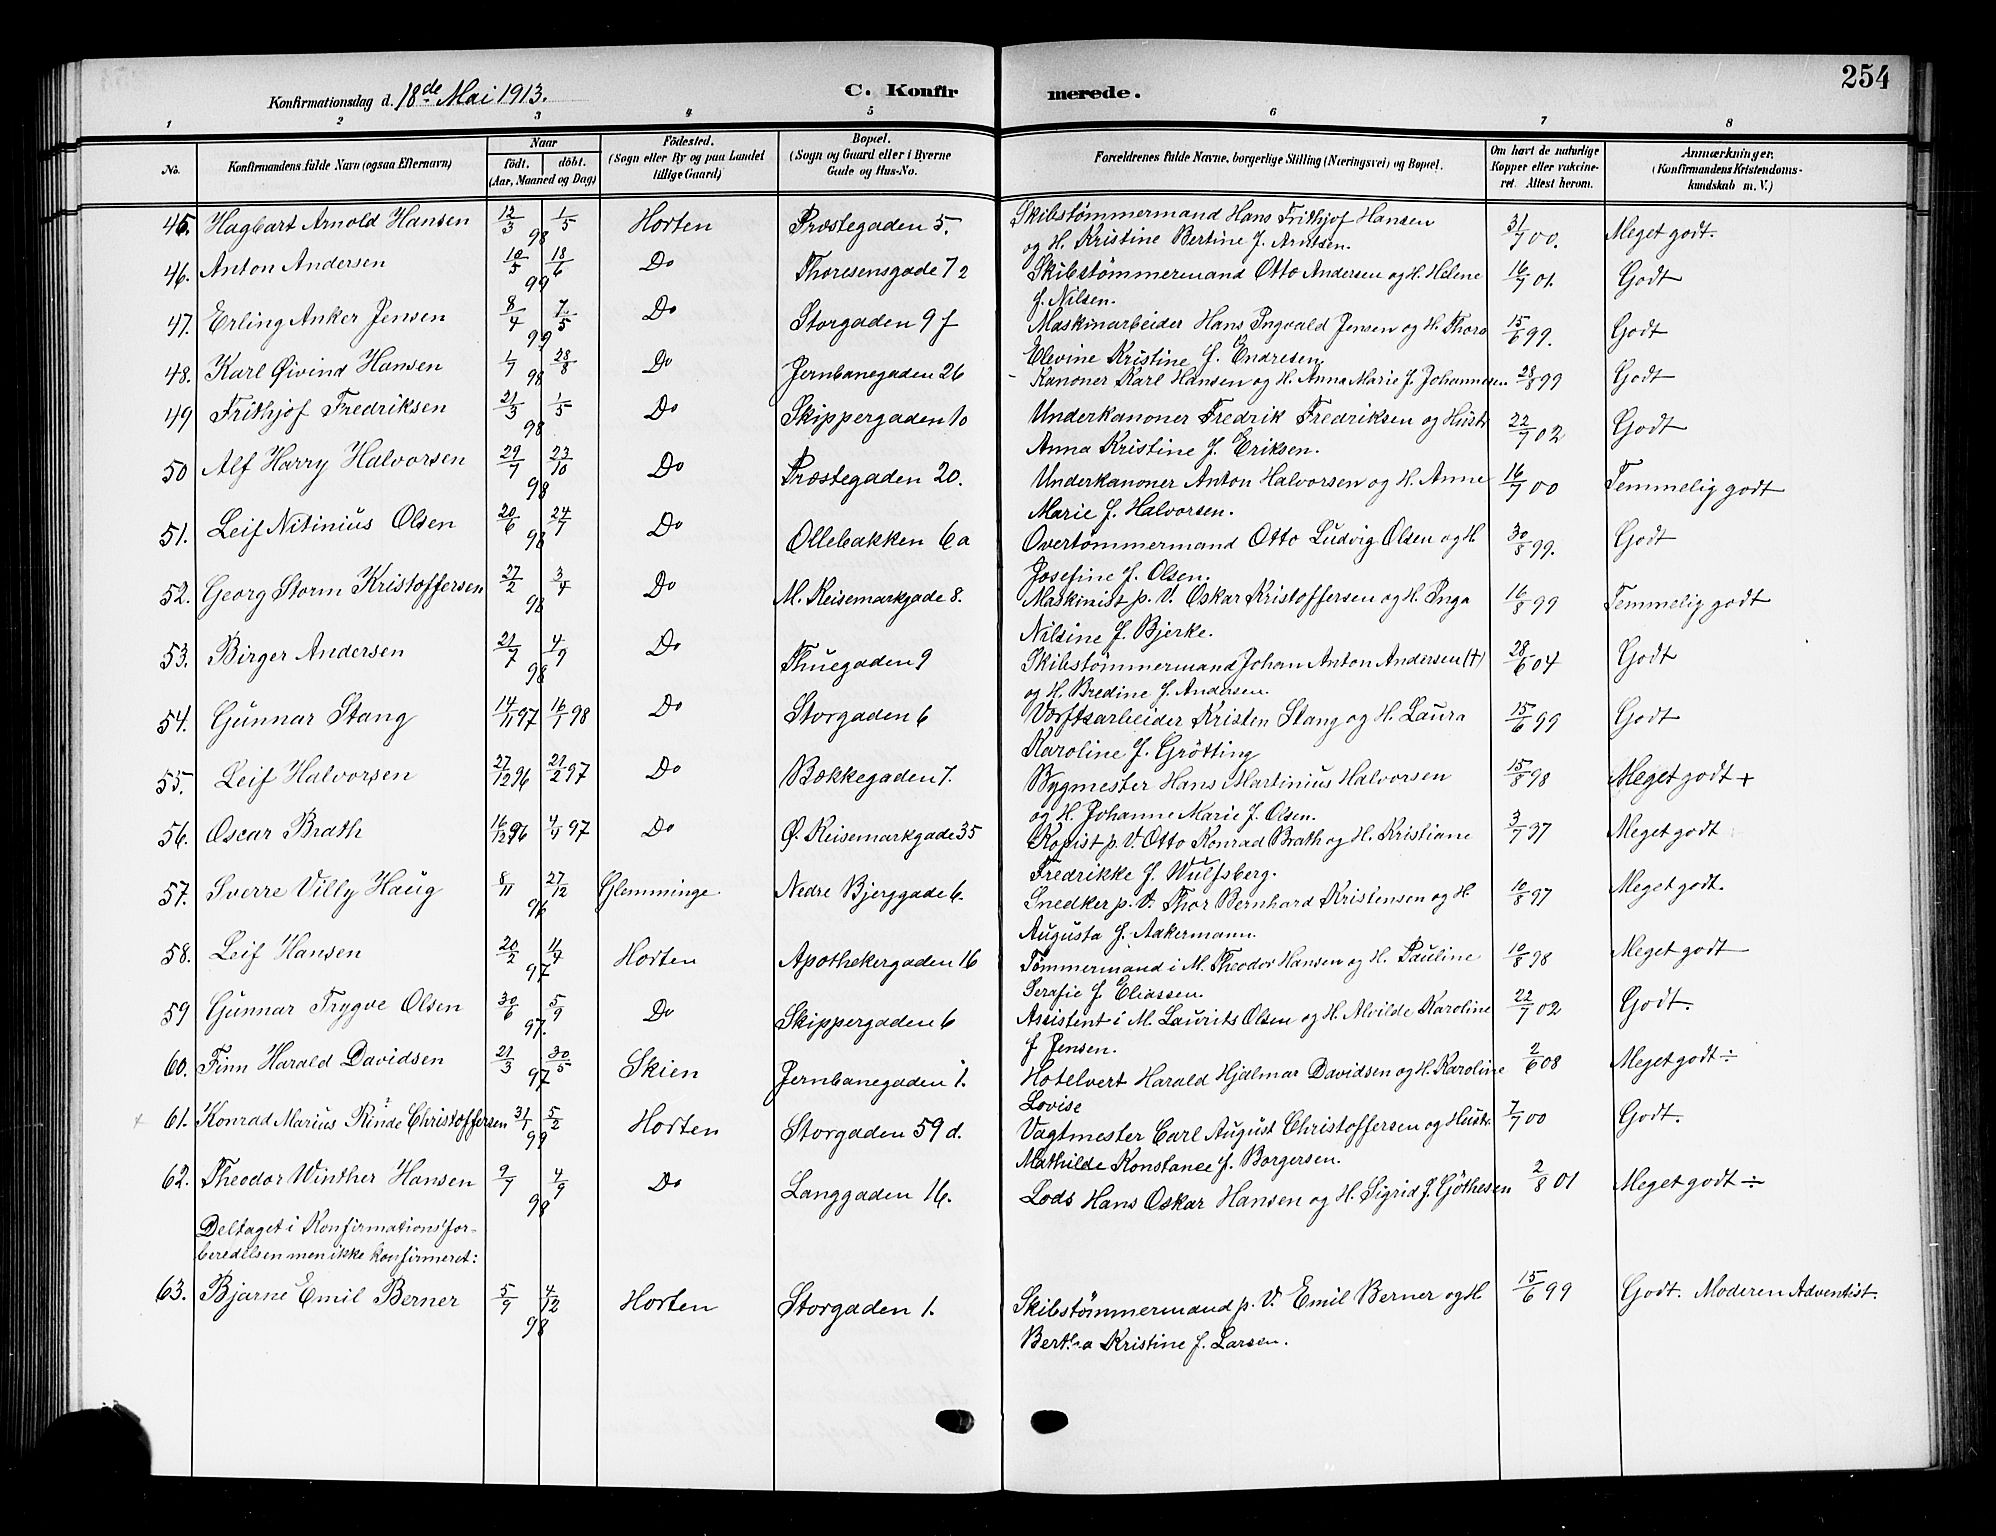 254
Konfirmationsdag d. 18de Mai 1913. C. Konfirmerede.
1 2 3 4 5 6 7 8
No. Konfirmandens fulde Navn (ogsaa Efternavn) Naar födt. döbt. (Aar, Maaned og Dag) Födested. (Sogn eller By og paa Landet tillige Gaard) Bopæl. (Sogn og Gaard eller i Byerne Gade og Hus-No. Forældrenes fulde Navne, borgerlige Stilling (Næringsvei) og Bopæl. Om havt de naturlige Kopper eller vakcineret. Attest herom. Anmærkninger. (Konfirmandens Kristendomskundskab m. V.)
45. Hagbart Arnold Hansen 12/3 98 1/5 Horten Præstegaden 5. Skibstømmermand Hans Frithjof Hansen 31/7 00. Meget godt.
og H. Kristine Bertine f. Arntsen.
46. Anton Andersen 10/5 99 18/6 Do Thoresensgade 72 Skibstømmermand Otto Andersen og H. Helene 16/7 01. Godt
f. Nilsen.
47. Erling Anker Jensen 8/4 99 7/5 Do Storgaden 9 f Maskinarbeider Hans Ingvald Jensen og H. Thora 15/6 99. Godt
Elevine Kristine f. Endresen.
48. Karl Øivind Hansen 1/7 98 28/8 Do Jernbanegaden 26 Kanoner Karl Hansen og H. Anna Marie f. Johannesen 28/8 99 Godt
49 Frithjof Fredriksen 21/3 98 1/5 Do Skippergaden 10 Underkanoner Fredrik Fredriksen og Hustr 22/7 02 Godt
Anna Kristine f. Eriksen.
50 Alf Harry Halvorsen 29/7 98 23/10 Do Præstegaden 20. Underkanoner Anton Halvorsen og H. Anne 16/7 00 Temmelig godt
Marie f. Halvorsen.
51. Leif Nitinius Olsen 20/6 98 24/7 Do Ollebakken 6a Overtømmermand Otto Ludvig Olsen og H. 30/8 99. Godt
Josefine f. Olsen.
52. Georg Storm Kristoffersen 27/2 98 3/4 Do M. Keisemarkgade 8. Maskinist p. V. Oskar Kristoffersen og H. Inga 16/8 99 Temmelig godt
Nilsine f. Bjerke.
53. Birger Andersen 21/7 98 4/9 Do Thuegaden 9 Skibstømmermand Johan Anton Andersen (+) 28/6 04 Godt
og H. Bredine f. Andersen.
54. Gunnar Stang 14/11 97 16/1 98 Do Storgaden 6 Værftsarbeider Kristen Stang og H. Laura 15/6 99 Godt
Karoline f. Grötting
55. Leif Halvorsen 27/12 96 21/2 97 Do Bækkegaden 7. Bygmester Hans Martinius Halvorsen 15/8 98 Meget godt +
og H. Johanne Marie f. Olsen.
56. Oscar Brath 16/12 96 4/4 97 Do Ø. Keisemarkgade 35 Kopist p. V. Otto Konrad Brath og H. Kristiane 3/7 97 Meget godt
Fredrikke f. Wulfsberg.
57. Sverre Villy Haug 8/11 96 27/12 Glemminge Nedre Bjerggade 6. Snedker p. V. Thor Bernhard Kristensen og H 10/8 97 Meget godt.
Augusta f. Aakermann.
58. Leif Hansen 20/2 97 11/4 Horten Apothekergaden 16 Tømmermand i M. Theodor Hansen og H. Pauline 10/8 98 Meget godt
Serafie f. Eliassen.
59 Gunnar Trygve Olsen 30/6 97. 5/9 Do Skippergaden 6 Assistent i M. Laurits Olsen og H. Alvilde Karoline 22/7 02 Godt.
f Jensen.
60. Finn Harald Davidsen 21/3 97 30/5 Skien Jernbanegaden 1. Hotelvert Harald Hjalmar Davidsen og H. Karoline 2/6 08 Meget godt ÷
Lovise
61. Konrad Marius Rinde Christoffersen 31/1 99 5/2 Horten Storgaden 59 d. Vagtmester Carl August Christoffersen og Hustr. 7/7 00 Godt.
Mathilde Konstance f. Borgersen.
62. Theodor Winther Hansen 9/7 98 4/9 Do Langgaden 16. Lods Hans Oskar Hansen og H. Sigrid f. Göthesen 2/8 01 Meget godt ÷
Deltaget i Konfirmationsfor-
beredelsen men ikke konfirmeret:
63. Bjarne Emil Berner 5/9 98 4/12 Horten Storgaden 1. Skibstømmermand p. V. Emil Berner og H. 15/6 99 Godt. Moderen Adventist.
Bertha Kristine f. Larsen.